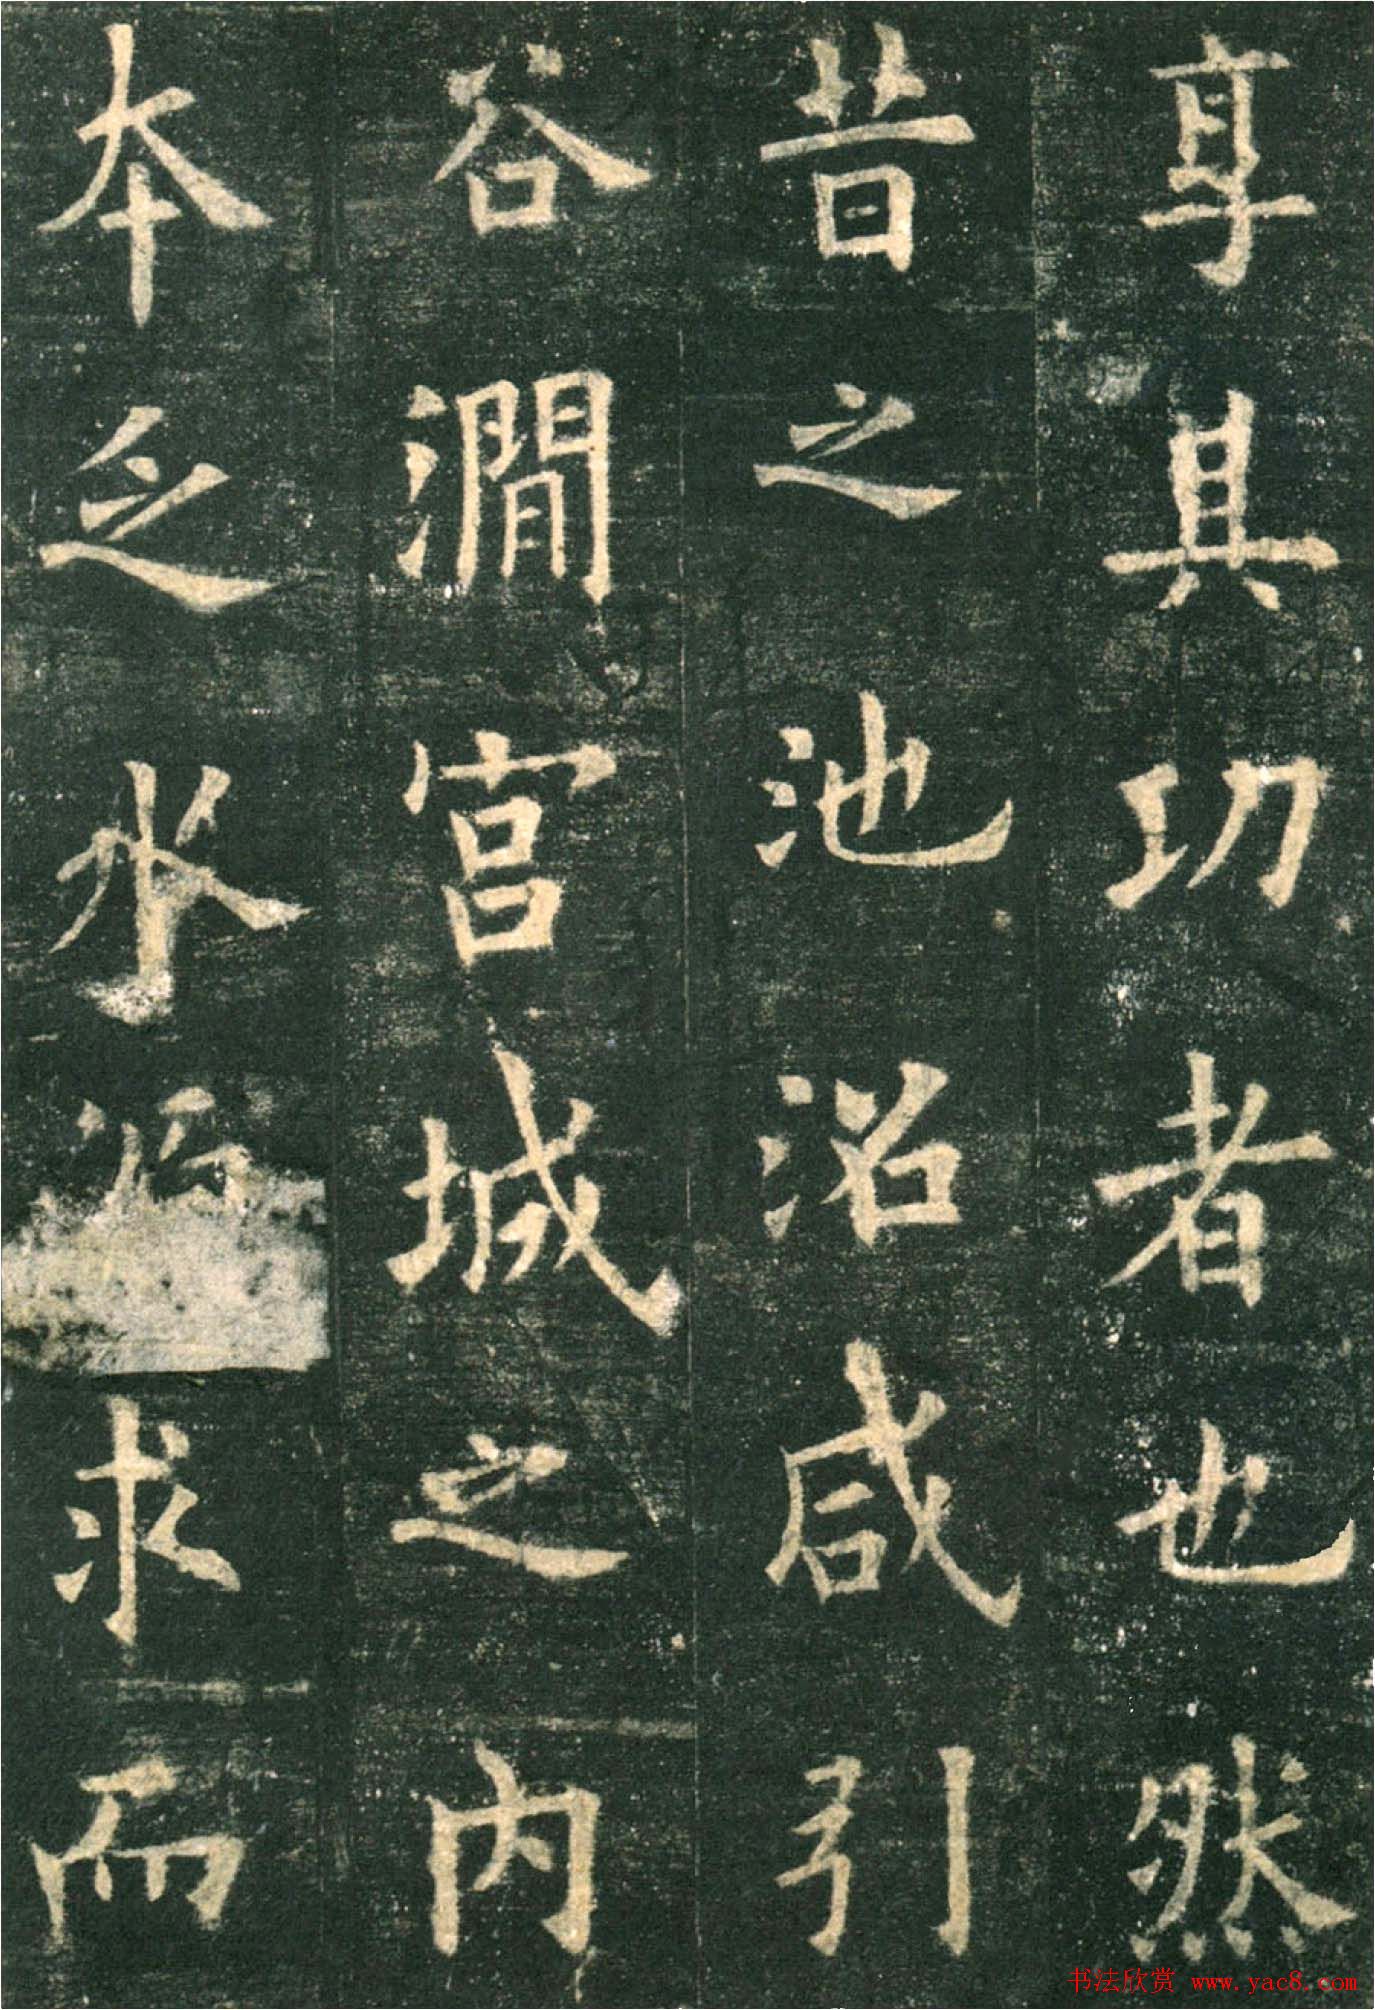 享其功者也然
昔之池沼咸引
谷澗宮城之內
本乏水求而
书法欣赏 www.yac8.com